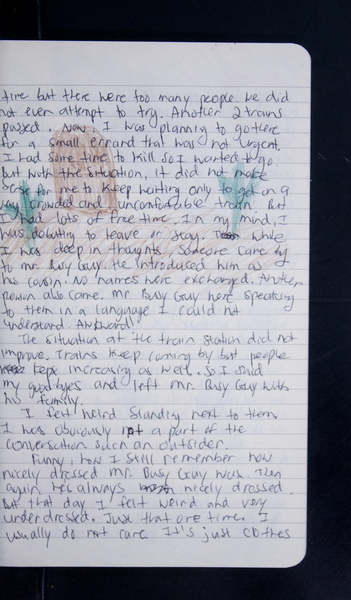 time but there were too many people. We did
not even attempt to try. Another 2 trains
passed. Now I was planning to go there
for a small errand that was not urgent.
I had some time to kill so I wanted to go.
But with the situation, it did not make
sense for me to keep waiting only to get on a
very crowded and uncomfortable train. But
I had lots of free time. In my mind, I
was debating to leave or stay. While
I was deep in thoughts, someone came by
to Mr. Busy Guy. He introduced him as
his cousin. No names were exchanged. Another
person also came. Mr Busy Guy were speaking
to them in a language I could not
understand. Awkward!
The situation at the train station did not
improve. Trains keep coming by but people
kept increasing as well. So I said
my goodbyes and left Mr. Busy Guy with
his family.
I felt weird standing next to them,
I was obviously not a part of the
conversation such an outsider.
Funny, how I still remember how
nicely dressed Mr. Busy Guy was. Then
again he's always nicely dressed.
But that day I felt weird and very
underdressed. Just that one time. I
usually do not care. It's just clothes